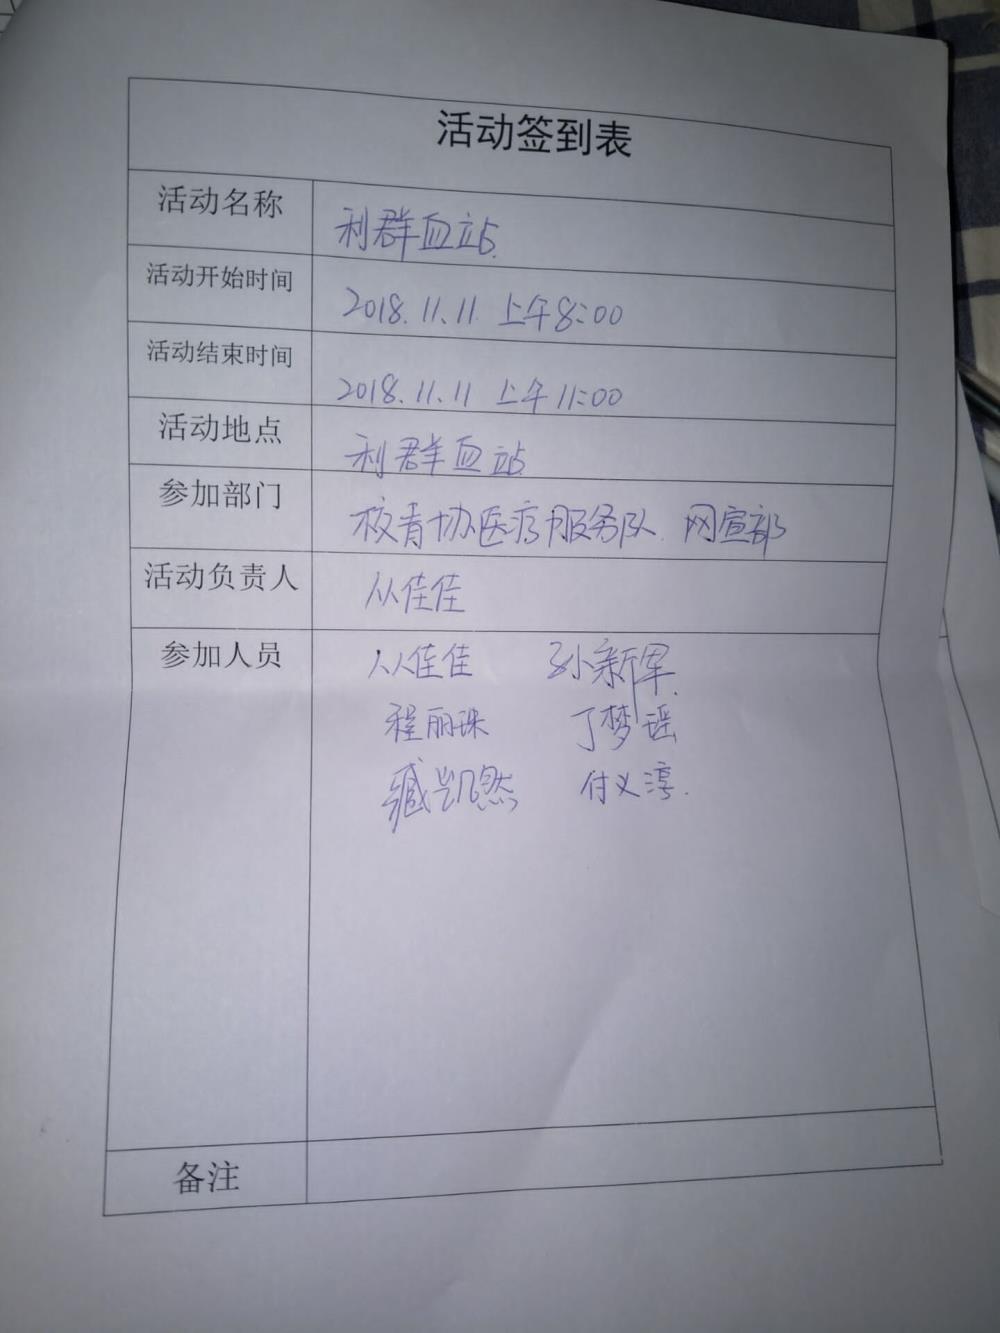 活动签到表
活动名称 利群血站
活动开始时间 2018.11.11 上午8:00
活动结束时间 2018.11.11 上午11:00
活动地点 利群血站
参加部门 校青协医疗服务队 网宣部
活动负责人 从佳佳
参加人员 从佳佳 孙新军
程丽珠 丁梦瑶
臧凯然 付义淳
备注